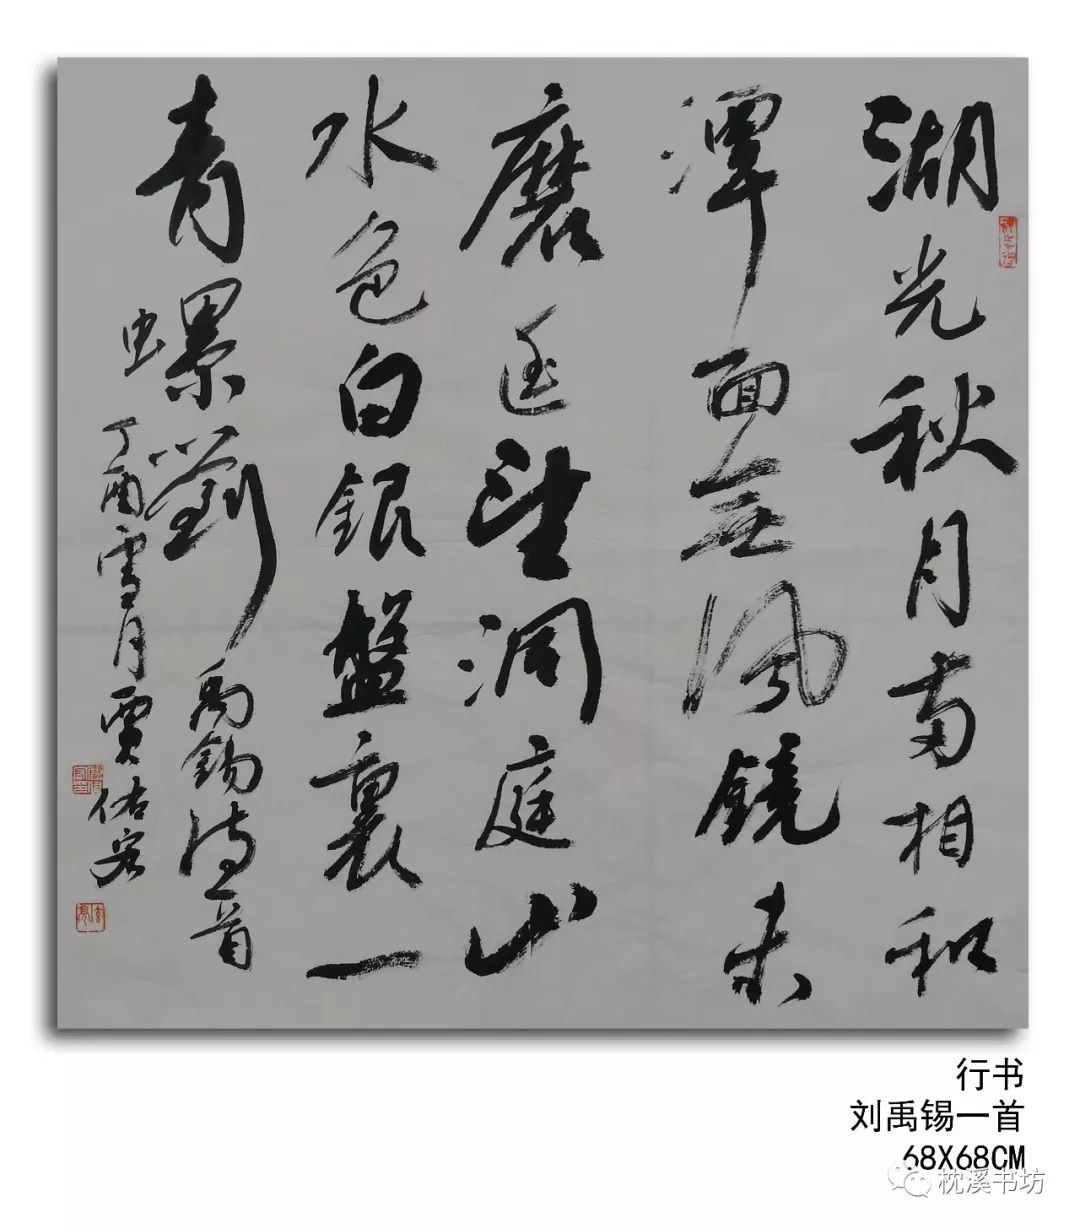 湖光秋月兩相和
潭面無風鏡未
磨遥望洞庭山
水色白銀盤裏一
青螺劉禹錫詩一首
丁酉雪月賈佑
行书
刘禹锡一首
68X68CM
枕溪书坊